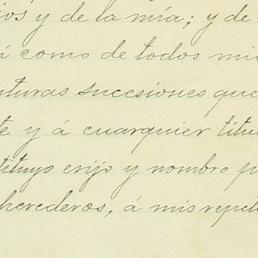 ios y de la mía; y de
á como de todos mi
uturas sucesiones que
te y á cuarquier titu
tituyo erijo y nombro p
herederos, á mis repet